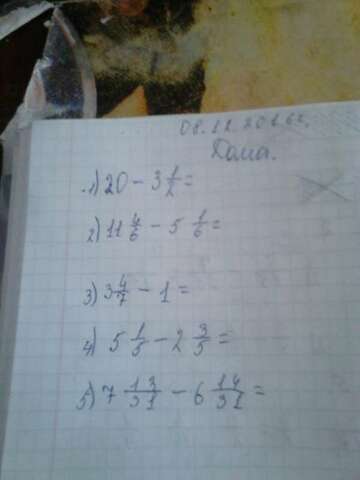 08.12.2016г.
Дома.
1) 20 - 3 1/2 =
2) 11 4/6 - 5 1/6 =
3) 3 4/7 - 1 =
4) 5 1/5 - 2 3/5 =
5) 7 13/31 - 6 14/31 =